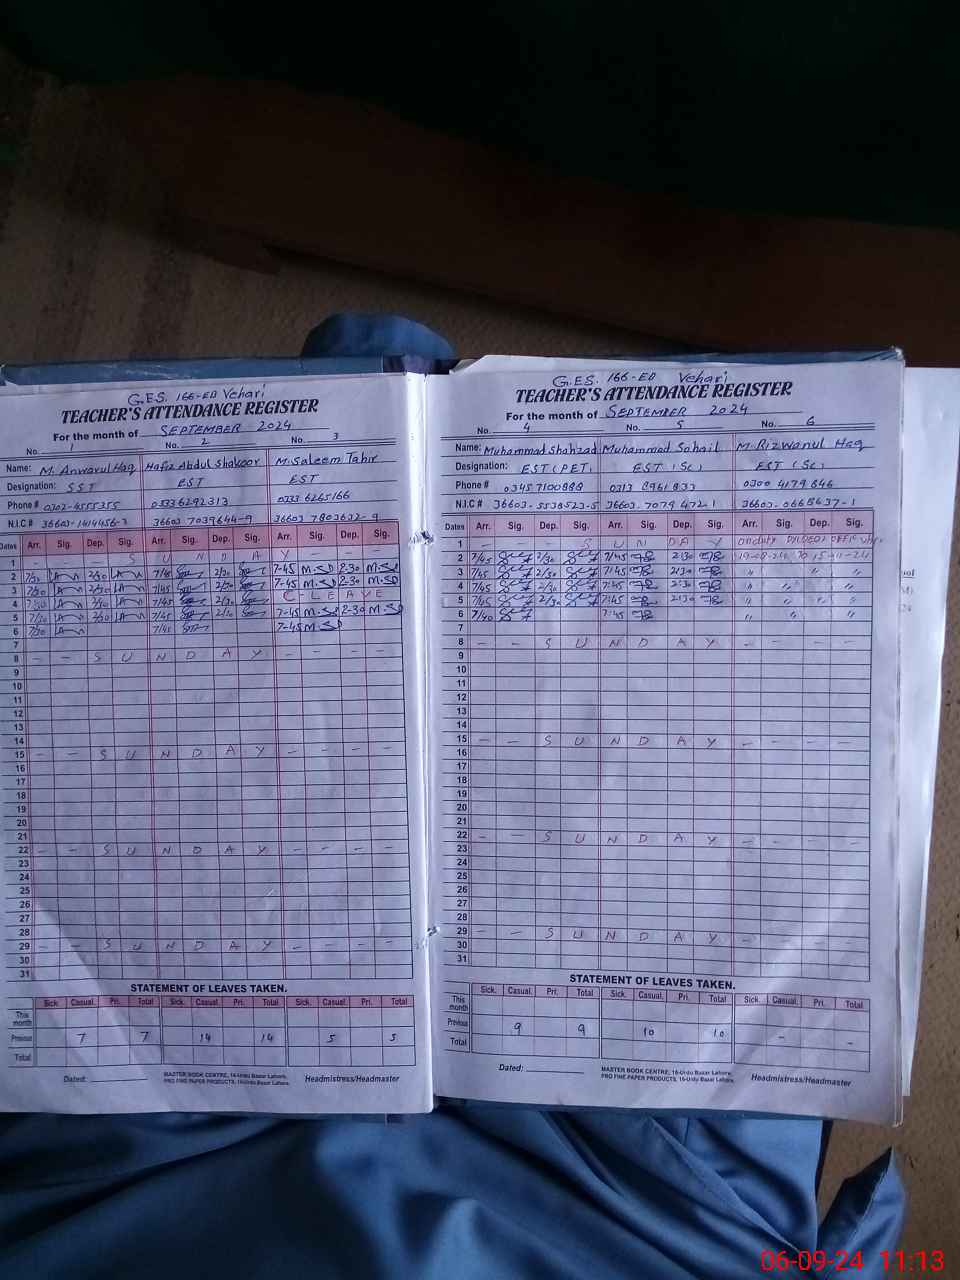 G.ES. 166-EB Vehari
TEACHER'S ATTENDANCE REGISTER
For the month of SEPTEMBER 2024
No. 1 No. 2 No. 3
Name: M. Anwarul Haq Hafiz Abdul Shakoor M. Saleem Tahir
Designation: SST EST EST
Phone # 0302-4555355 03336292313 0333 6265166
N.I.C # 36603-1414456-3 36603 7039644-9 36603 7803632-9
Dates Arr. Sig. Dep. Sig. Arr. Sig. Dep. Sig. Arr. Sig. Dep. Sig.
1 - - - S U N D A Y
2 7/30 2/30 7/45 2/30 7-45 M.SD 2-30 M.SD
3 7/30 2/30 7/45 2/30 7-45 M.SD 2-30 M.SD
4 7/30 2/30 7/45 2/30 C-LEAVE
5 7/30 2/30 7/45 2/30 7-45 M.SD 2-30 M.SD
6 7/30 7/45 7-45 M.SD
7
8 - - S U N D A Y - - - -
9
10
11
12
13
14
15 - - S U N D A Y - - - -
16
17
18
19
20
21
22 - - S U N D A Y - - - -
23
24
25
26
27
28
29 - - S U N D A Y - - - -
30
31
STATEMENT OF LEAVES TAKEN.
Sick. Casual. Pri. Total Sick. Casual. Pri. Total Sick. Casual. Pri. Total
This month
Previous 7 7 14 14 5 5
Total
Dated:
MASTER BOOK CENTRE, 16-Urdu Bazar Lahore.
PRO FINE PAPER PRODUCTS, 16-Urdu Bazar Lahore.
Headmistress/Headmaster
G.ES. 166-EB Vehari
TEACHER'S ATTENDANCE REGISTER
For the month of SEPTEMBER 2024
No. 4 No. 5 No. 6
Name: Muhammad Shahzad Muhammad Sohail M. Rizwanul Haq
Designation: EST (PET) EST (Sc) EST (Sc)
Phone # 0345 7100888 0313 8961833 0300 4179846
N.I.C # 36603-5538523-5 36603-7079 472-1 36603-0668637-1
Dates Arr. Sig. Dep. Sig. Arr. Sig. Dep. Sig. Arr. Sig. Dep. Sig.
1 - - - S U N D A Y onduty
2 7/45 2/30 7/45 2:30 19-08-24 To 15-11-24
3 7/45 2/30 7:45 2:30 " " "
4 7/45 2/30 7:45 2:30 " " " "
5 7/45 2/30 7:45 2:30 " " " "
6 7/40 7:45 " " " "
7
8 - - S U N D A Y - - - -
9
10
11
12
13
14
15 - - S U N D A Y - - - -
16
17
18
19
20
21
22 - - S U N D A Y - - - -
23
24
25
26
27
28
29 - - S U N D A Y - - - -
30
31
STATEMENT OF LEAVES TAKEN.
Sick. Casual. Pri. Total Sick. Casual. Pri. Total Sick. Casual. Pri. Total
This month
Previous 9 9 10 10 - -
Total
Dated:
MASTER BOOK CENTRE, 16-Urdu Bazar Lahore.
PRO FINE PAPER PRODUCTS, 16-Urdu Bazar Lahore.
Headmistress/Headmaster
06-09-24 11:13